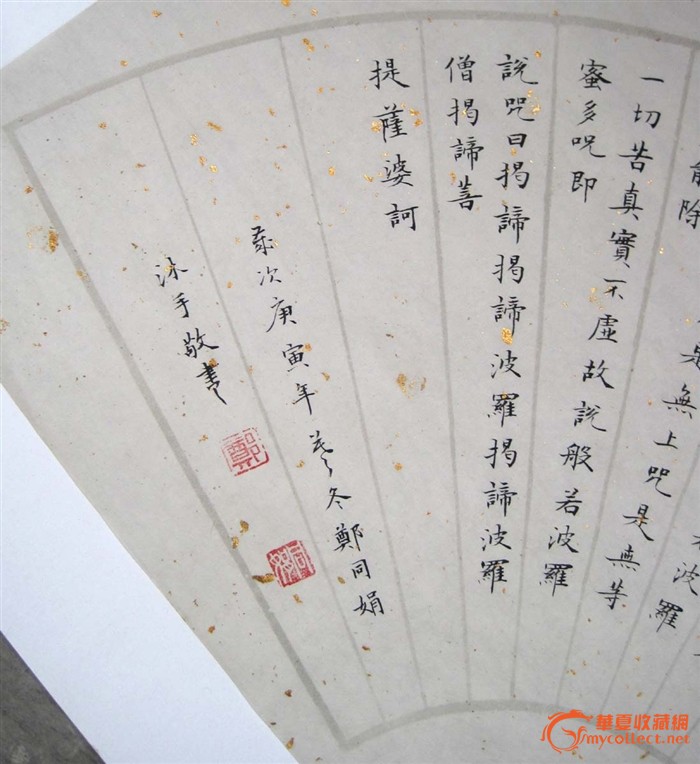 波羅
是無上咒是無等
能除
一切苦真實不虛故說般若波羅
蜜多咒即
說咒曰揭諦揭諦波羅揭諦波羅
僧揭諦菩
提薩婆訶
歲次庚寅年冬鄭同娟
沐手敬書
鄭
華夏收藏網
mycollect.net